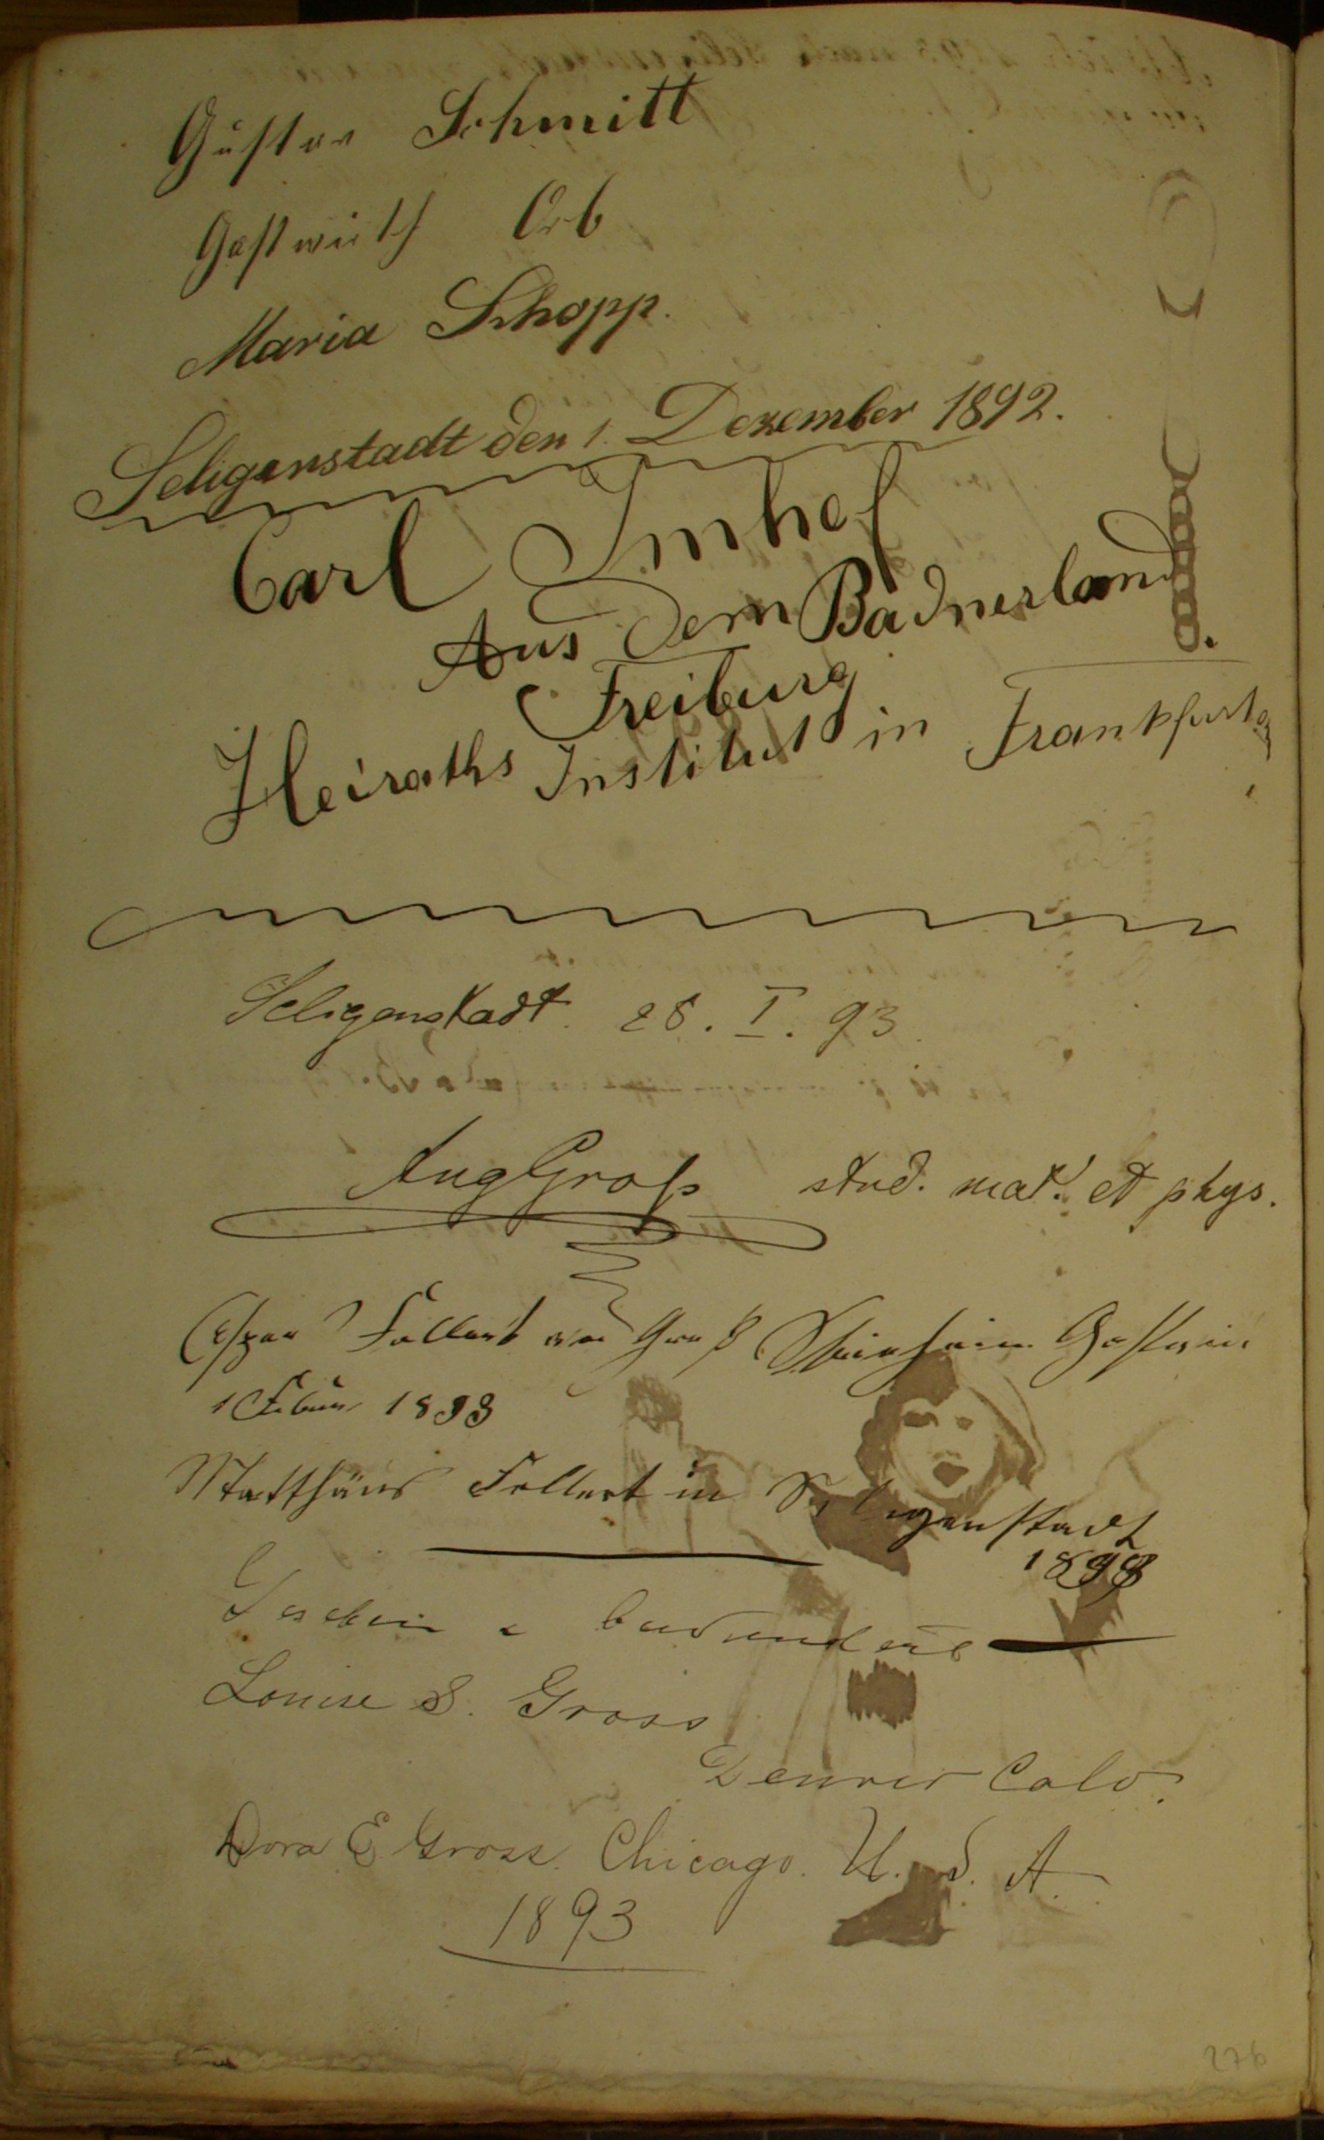 Gustav Schmitt
Gastwirth Orb
Maria Schopp.
Seligenstadt den 1. Dezember 1892.
Carl Imhof
Aus dem Badnerland.
Freiburg
Heiraths Institut in Frankfurt
Seligenstadt. 28. I. 93.
Aug Groß stud. mat. et phys.
Follert Groß Steinheim
1 Februar 1893
Matthäus Follert in Seligenstadt
1893
Louise S. Gross
Denver Colo.
Dora E Gross. Chicago. U. S. A.
1893
276